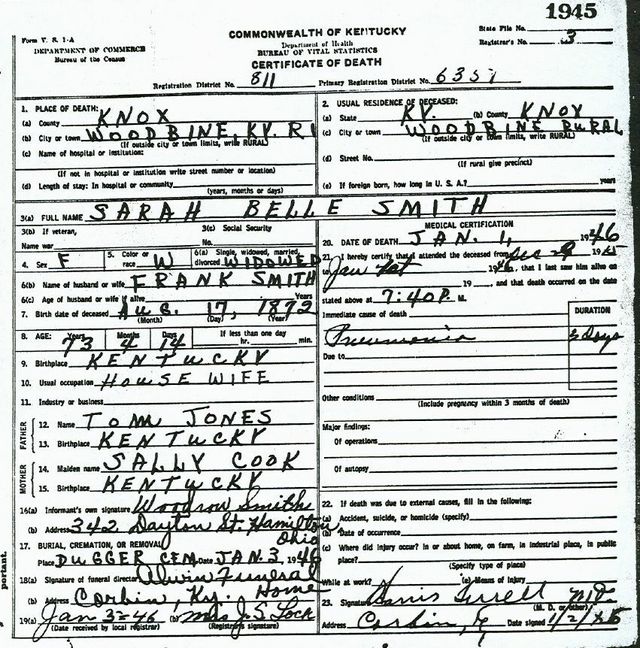 1945
Form V. S. 1-A
DEPARTMENT OF COMMERCE
Bureau of the Census
COMMONWEALTH OF KENTUCKY
Department of Health
BUREAU OF VITAL STATISTICS
CERTIFICATE OF DEATH
State File No.
Registrar's No. 3
Registration District No. 811 Primary Registration District No. 6351
1. PLACE OF DEATH:
(a) County KNOX
(b) City or town WOODBINE, KY. R1
(If outside city or town limits, write RURAL)
(c) Name of hospital or institution:
(If not in hospital or institution write street number or location)
(d) Length of stay: In hospital or community
(years, months or days)
2. USUAL RESIDENCE OF DECEASED:
(a) State KY. (b) County KNOX
(c) City or town WOODBINE RURAL
(If outside city or town limits, write RURAL)
(d) Street No.
(If rural give precinct)
(e) If foreign born, how long in U. S. A.? years
3(a) FULL NAME SARAH BELLE SMITH
3(b) If veteran, Name war
3(c) Social Security No.
4. Sex F 5. Color or race W 6(a) Single, widowed, married, divorced WIDOWED
6(b) Name of husband or wife FRANK SMITH
6(c) Age of husband or wife if alive Years
7. Birth date of deceased AUG. 17, 1872
(Month) (Day) (Year)
8. AGE: Years 73 Months 4 Days 14 If less than one day hr. min.
9. Birthplace KENTUCKY
10. Usual occupation HOUSE WIFE
11. Industry or business
FATHER
12. Name TOM JONES
13. Birthplace KENTUCKY
MOTHER
14. Maiden name SALLY COOK
15. Birthplace KENTUCKY
16(a) Informant's own signature Woodrow Smith
(b) Address 342 Dayton St. Hamilton Ohio
17. BURIAL, CREMATION, OR REMOVAL
Place DUGGER CEM Date JAN. 3, 1946
18(a) Signature of funeral director Funeral Home
(b) Address Corbin, Ky.
19(a) Jan 3-46 (b) Mrs J. S. Lock
(Date received by local registrar) (Registrar's signature)
MEDICAL CERTIFICATION
20. DATE OF DEATH JAN. 1, 1946
21. I hereby certify that I attended the deceased from Dec 29 1945
to Jan 1st 1946, that I last saw him alive on
19 , and that death occurred on the date
stated above at 7:40 P. M.
Immediate cause of death
DURATION
Pneumonia 3 days
Due to
Other conditions
(Include pregnancy within 3 months of death)
Major findings:
Of operations
Of autopsy
22. If death was due to external causes, fill in the following:
(a) Accident, suicide, or homicide (specify)
(b) Date of occurrence
(c) Where did injury occur? in or about home, on farm, in industrial place, in public place?
(Specify type of place)
While at work? (e) Means of injury
23. Signature M.D.
(M. D. or other)
Address Corbin, Ky Date signed
portant.